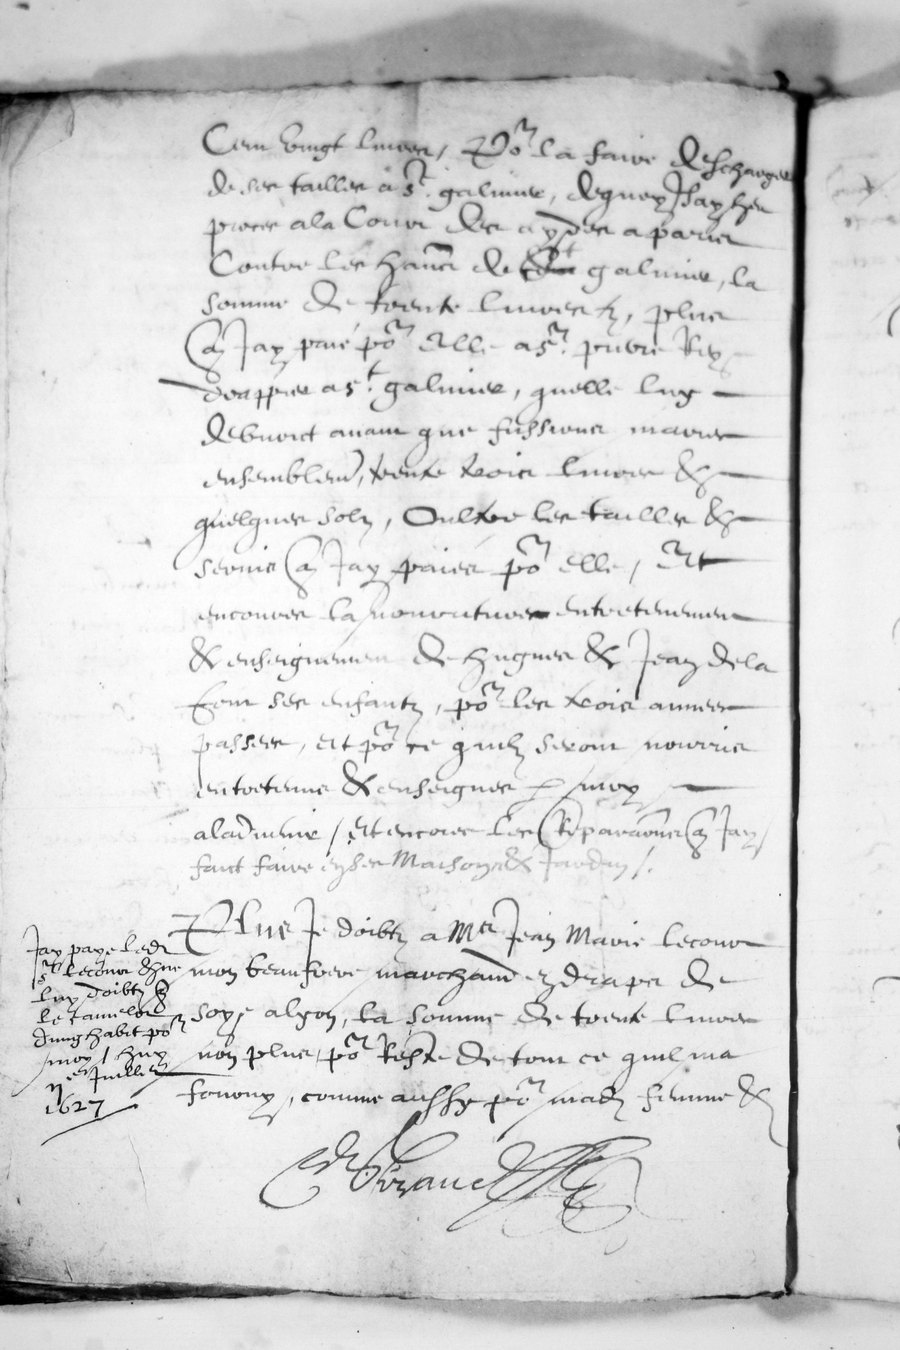 Cent vingt livres, Por la faire descharger
de ses tailles a St. galmier, dequoy J'ay heu
proces a la Cour des aydes a paris
Contre les hantz de St galmier, la
somme de trente livres tz, plus
q Jay paié por elle a Sr. pierre Rey
drappier a St. galmier, quelle luy
debvoict avant que fussions maries
ensemblemt, trente trois livres &
quelques solz, Oultre les tailles &
servis q Jay paiés por elle, Et
encoures la nourriture entretenement
& enseignement de hugues & Jean dela
ses enfantz, por les trois annees
passees, et por ce quilz seront nourris
entretenus & enseignes p moy
aladvenir / et encores les Reparaons q Jay
faict faire en ses Maisons & Jardin /.
Plus Je doibtz a Mre Jean Marie lecour
mon beaufrere marchant en draps de
soye a lyon, la somme de trente livres
non plus, por Reste de tout ce quil ma
forny, comme aussy por mad femme &
Jay paye led
Sr lecour & ne
luy doibtz q
le camelot
dung habit por
moy / huy
11e Juillet
1627